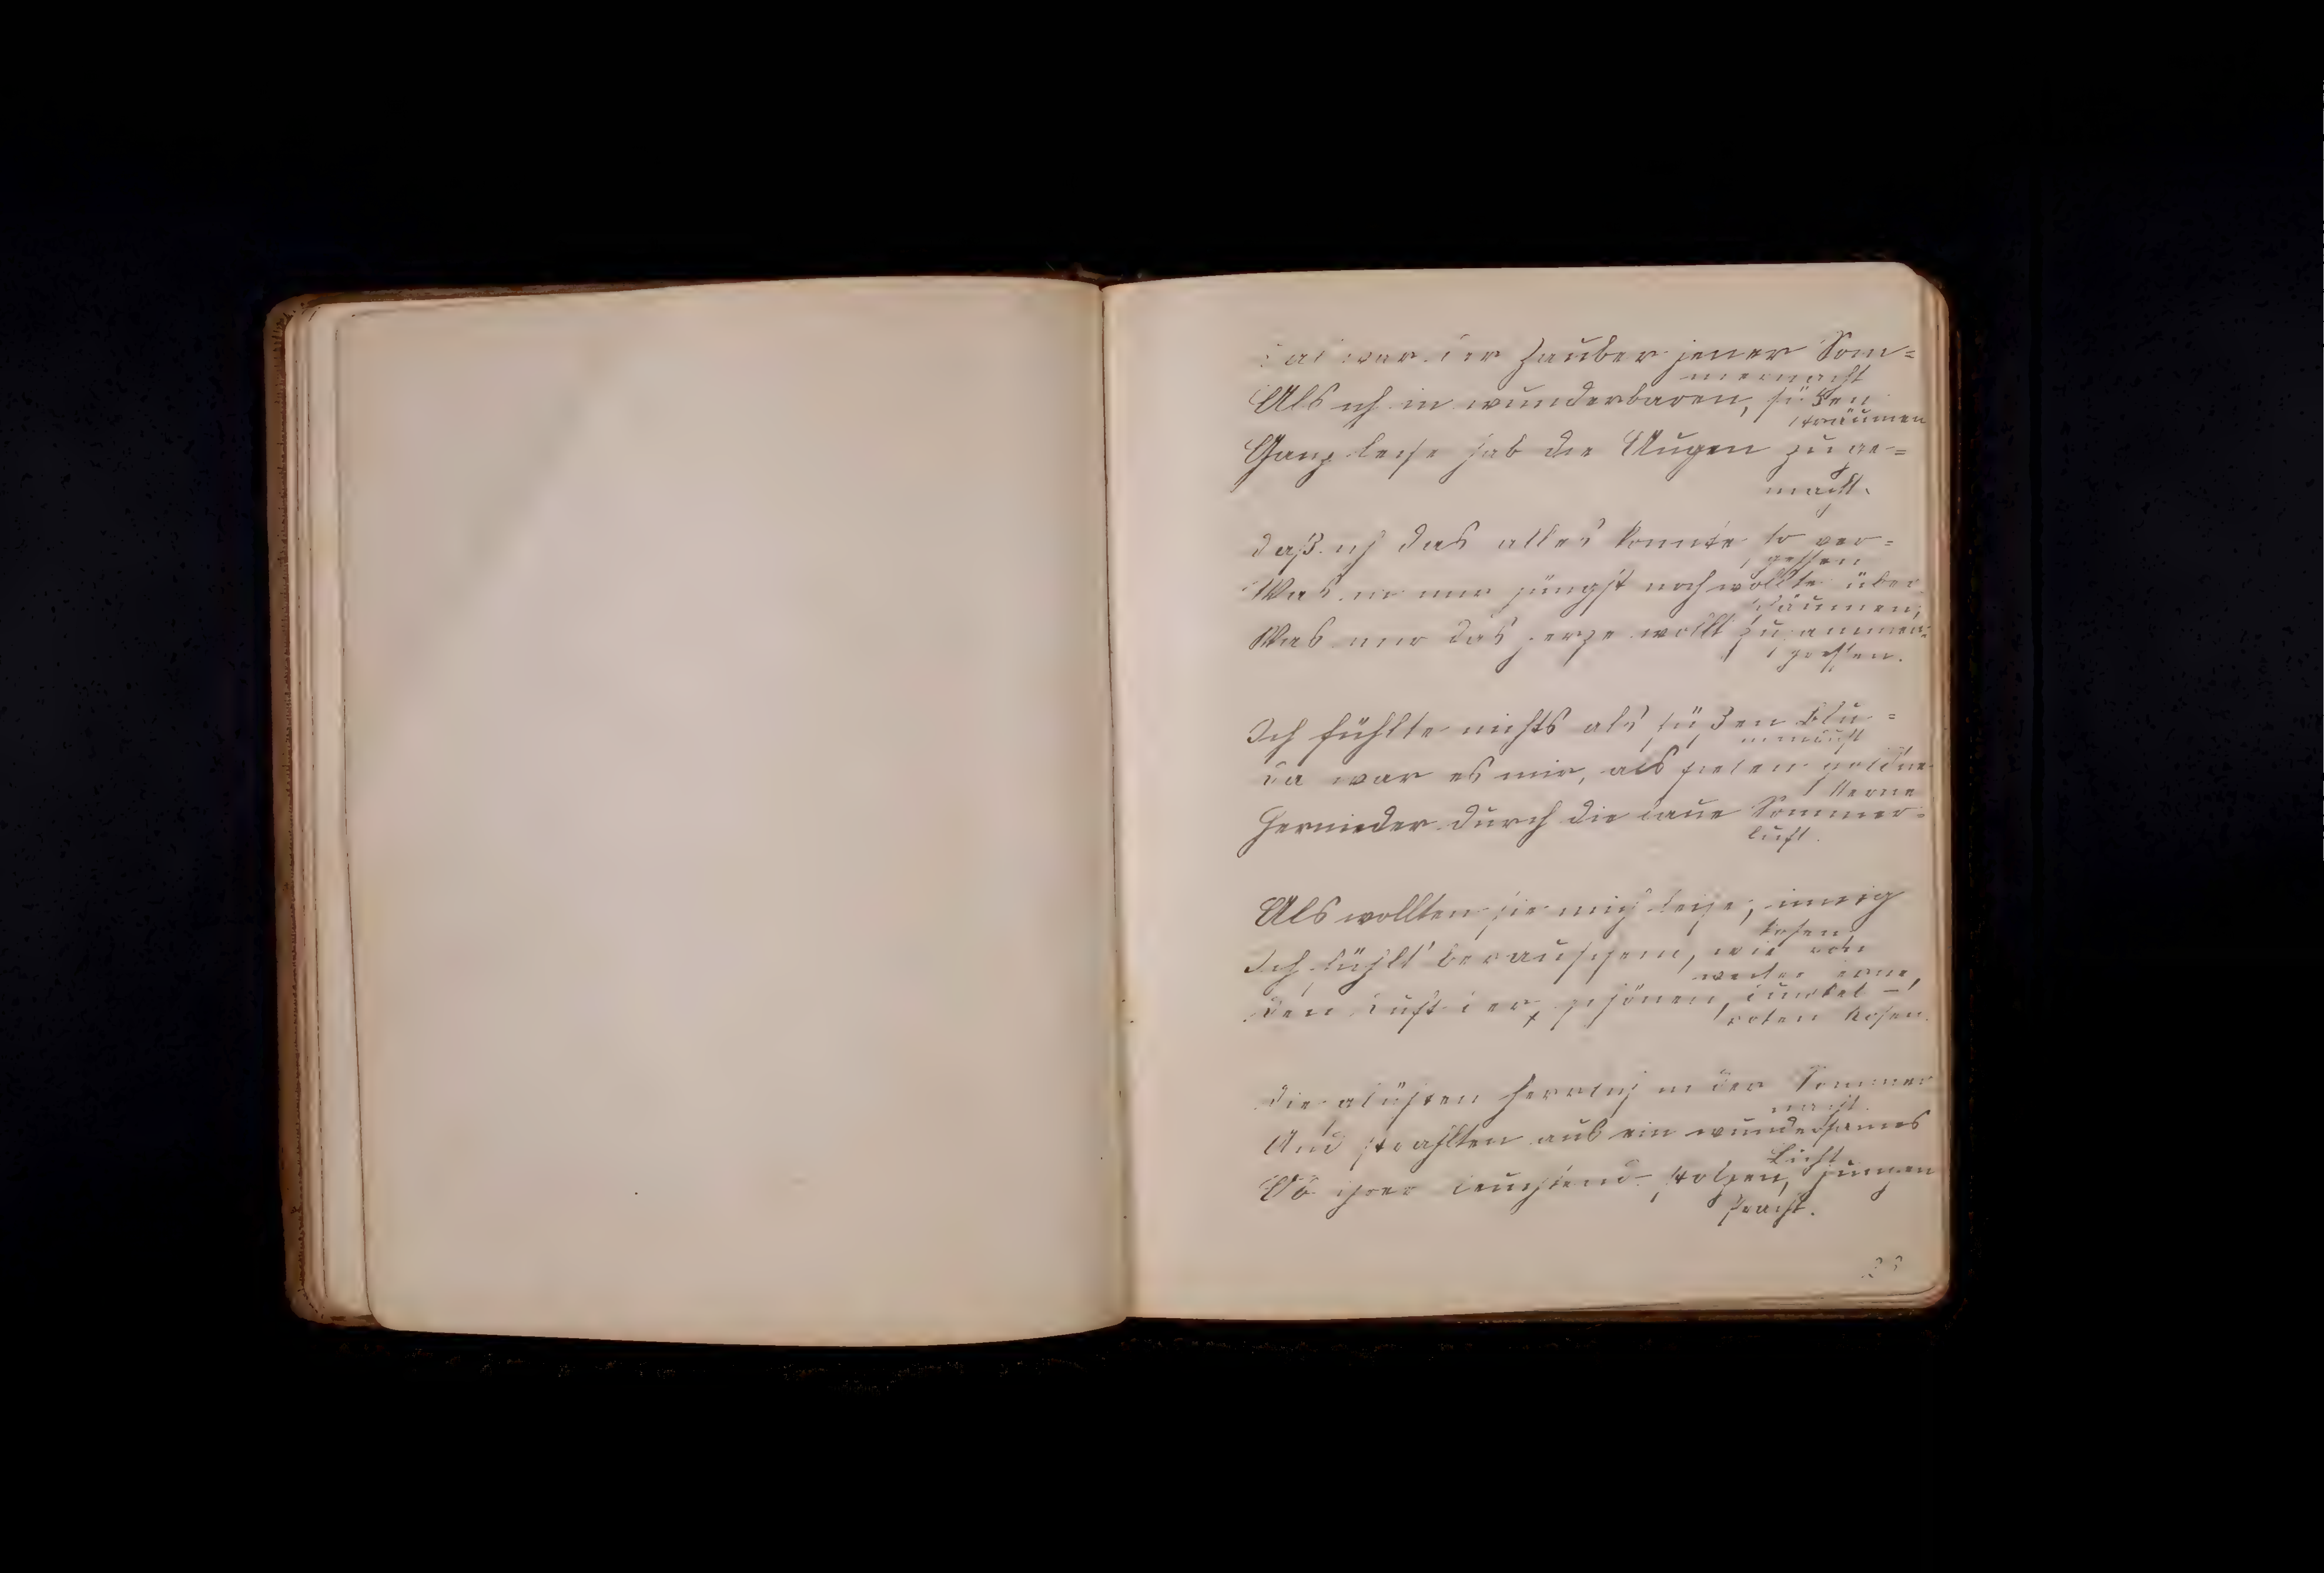 Das war der Zauber jener Som=
mernacht
Als ich in wunderbaren, süßen
Träumen
Ganz leise hab die Augen zuge=
macht.
Daß ich das alles konnte so ver=
gessen
Was in mir jüngst noch wollte über
schäumen,
Was mir das Herze wollt zusammen=
pressen.
Ich fühlte nichts als süßen Blu=
menduft
Da war es mir, als fielen goldne
Sterne
Hernieder durch die laue Sommer=
luft.
Als wollten sie mich leise, innig
kosen,
Ich fühlt' berauschend, wie von
weiter Ferne,
Den Duft der schönen, dunkel-
roten Rosen.
Die glühten herrlich in der Sommer
nacht.
Und strahlten aus ein wundersames
Licht
Ob ihrer leuchtend- stolzen, jungen
Pracht.